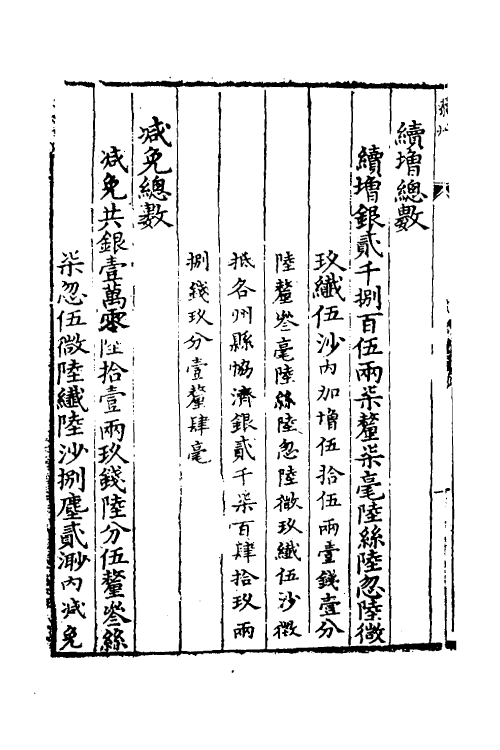 續增總數
續增銀貳千捌百伍兩柒釐柒毫陸絲陸忽陸微
玖纖伍沙內加增伍拾伍兩壹錢壹分
陸釐叁毫陸絲陸忽陸微玖纖伍沙徵
抵各州縣恊濟銀貳千柒百肆拾玖兩
捌錢玖分壹釐肆毫
减免總數
减免共銀壹萬零陸拾壹兩玖錢陸分伍釐叁絲
柒忽伍微陸纖陸沙捌塵貳渺內减免